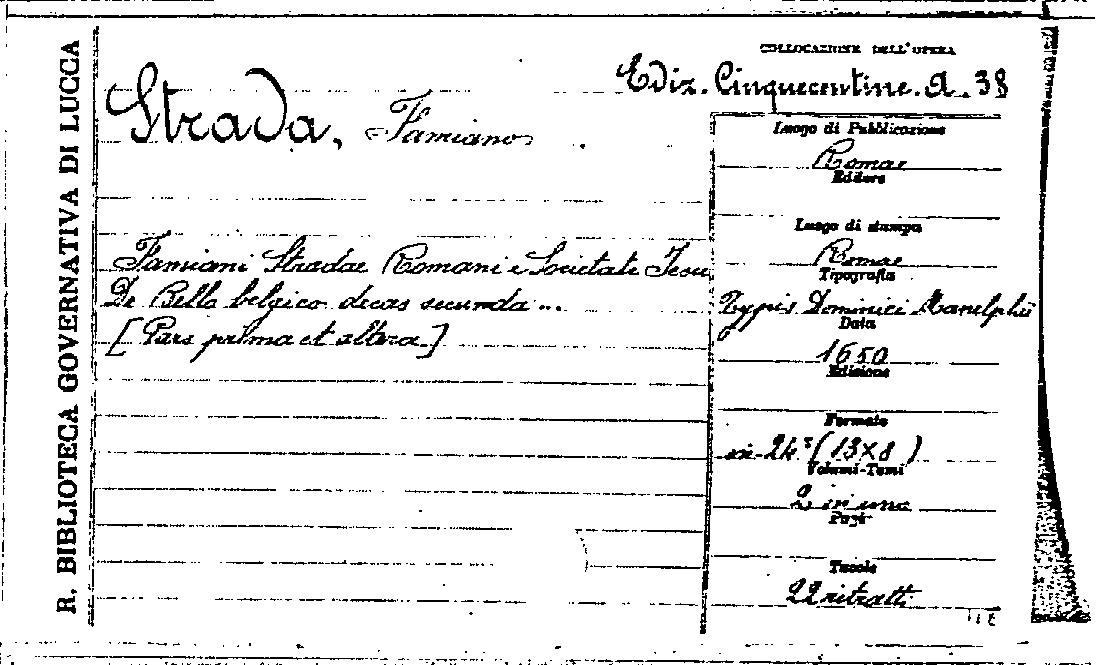 R. BIBLIOTECA GOVERNATIVA DI LUCCA
COLLOCAZIONE DELL'OPERA
Ediz. Cinquecentine. A. 38
Strada, Famiano
Famiani Stradae Romani e Societate Jesu
De Bello belgico decas secunda...
[Pars prima et altera.]
Luogo di Pubblicazione
Romae
Editore
Luogo di stampa
Romae
Tipografia
Typis Dominici Manelphii
Data
1650
Edizione
Formato
in-24° (13x8)
Volumi-Tomi
2 in uno
Pagg.
Tavole
22 ritratti